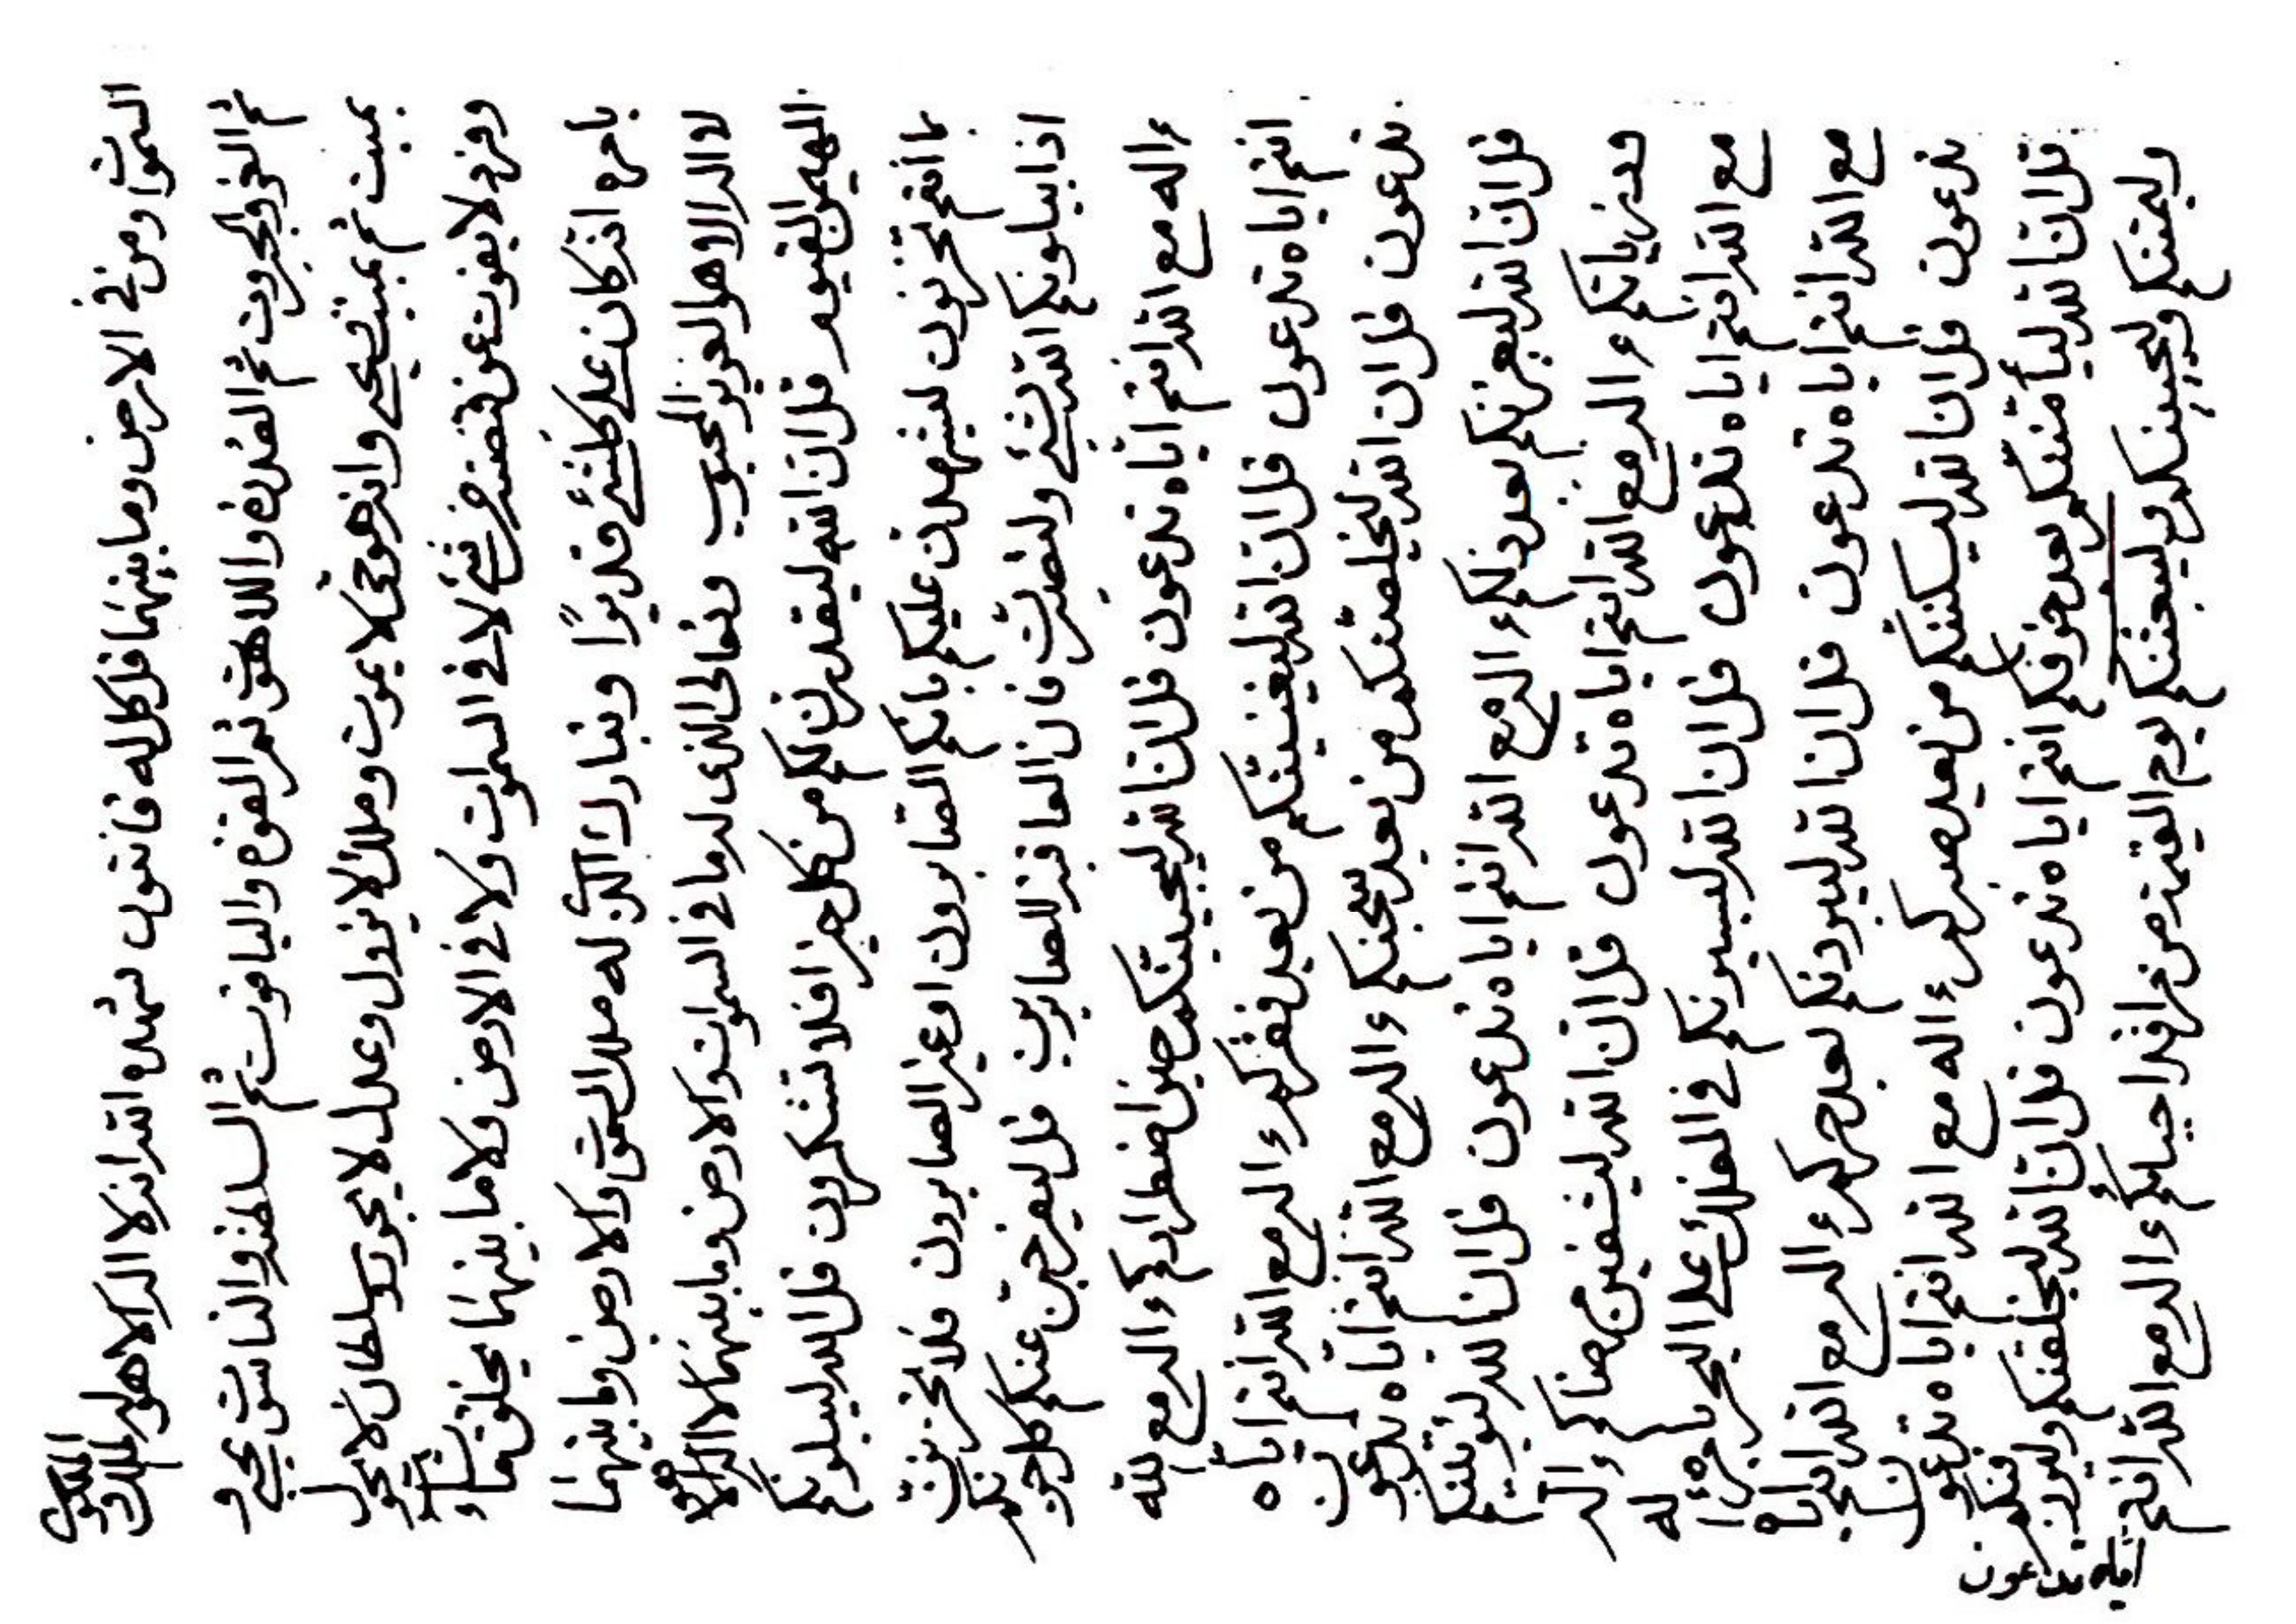 السموات ومن في الارض وما بينهما قل كل له قانتون شهد الله انه لا اله الا هو له الملك والملكوت
ثم العز والجبروت ثم القدرة واللاهوت ثم القوة والياقوت ثم السلطنة والناسوت يحيي و
يميت ثم يميت ويحيي وانه هو حي لا يموت وملك لا يزول وعدل لا يجور وسلطان لا يحول
وفرد لا يفوت عن قبضته من شئ لا في السموات ولا في الارض ولا ما بينهما يخلق ما يشاء
بامره انه كان على كلشئ قديرًا وتبارك الذي له ملك السموات والارض وما بينهما
لا اله الا هو العزيز المحبوب وتعالى الذى له ما في السموات والارض وما بينهما لا اله الا هو
المهيمن القيوم قل ان الله ليقدرن لكم من كل خير افلا تشكرون قل الله ليبلونكم
بما انتم تحزنون ليشهدن عليكم بانكم الصابرون او غير الصابرون فلا تحزنون
اذا يبلونكم الله بشئ ولتصبرن فان العاقبة للصابرين قل ليفرجن عنكم كل حزنكم
ءاله مع الله انتم اياه تدعون قل ان الله ليجيبنكم حين اضطراركم ءاله مع الله
انتم اياه تدعون قل ان الله ليغنينكم من بعد فقركم ءاله مع الله انتم اياه
تدعون قل ان الله ليخلصنكم من بعد سجنكم ءاله مع الله انتم اياه تدعون
قل ان الله ليعزنكم بعد ذلكم ءاله مع الله انتم اياه تدعون قل ان الله
ءاله مع الله انتم اياه تدعون قل ان الله ليشفين مرضاكم ءاله
مع الله انتم اياه تدعون قل ان الله ليسيرنكم في الفلك على البحر بامره ءاله
مع الله انتم اياه تدعون قل ان الله ليبردنكم بعد حركم ءاله مع الله انتم اياه
تدعون قل ان الله ليسكننكم من بعد صبركم ءاله مع الله انتم اياه تدعون
قل ان الله ليأمننكم بعد خوفكم انتم اياه تدعون قل ان الله ليخلقنكم وليرزقنكم
وليميتنكم وليحيينكم وليبعثنكم يوم القيمة من ءاله مع الله انتم اياه تدعون